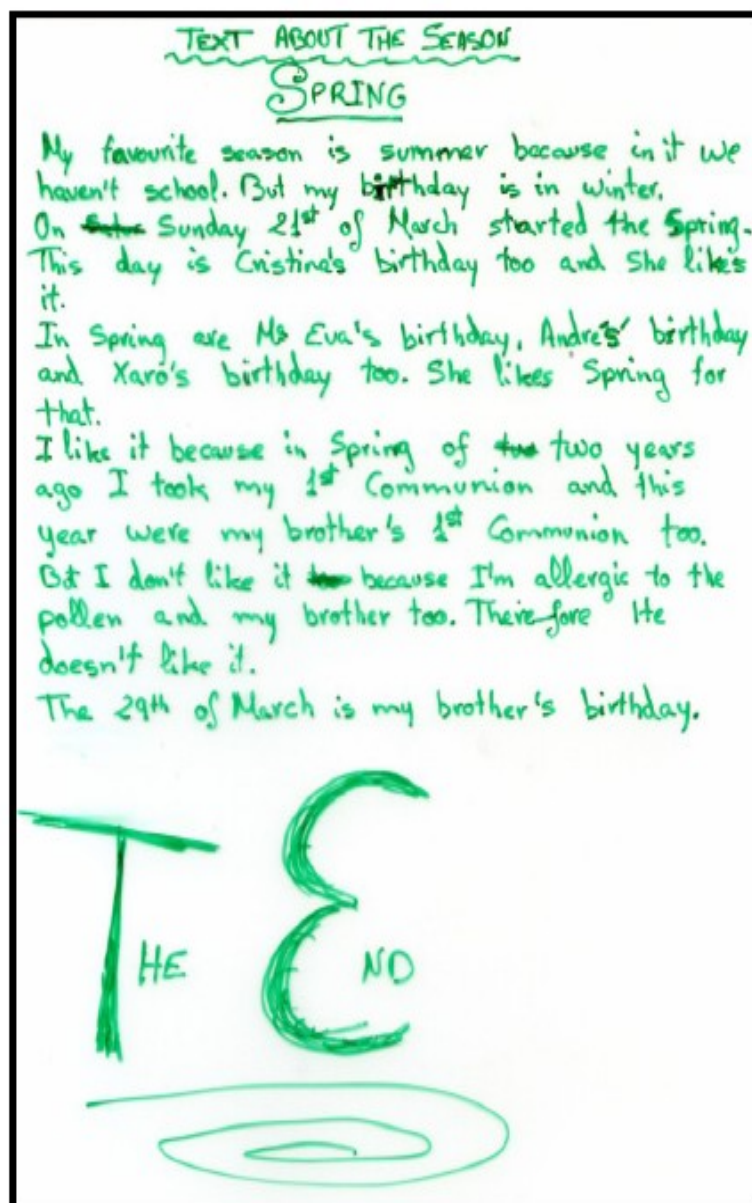 TEXT ABOUT THE SEASON
SPRING
My favourite season is summer because in it we
haven't school. But my birthday is in winter.
On Sunday 21st of March started the Spring.
This day is Cristina's birthday too and She likes
it.
In Spring are Ms Eva's birthday, Andres' birthday
and Xaro's birthday too. She likes Spring for
that.
I like it because in Spring of two years
ago I took my 1st Communion and this
year were my brother's 1st Communion too.
But I don't like it because I'm allergic to the
pollen and my brother too. Therefore He
doesn't like it.
The 29th of March is my brother's birthday.
THE END